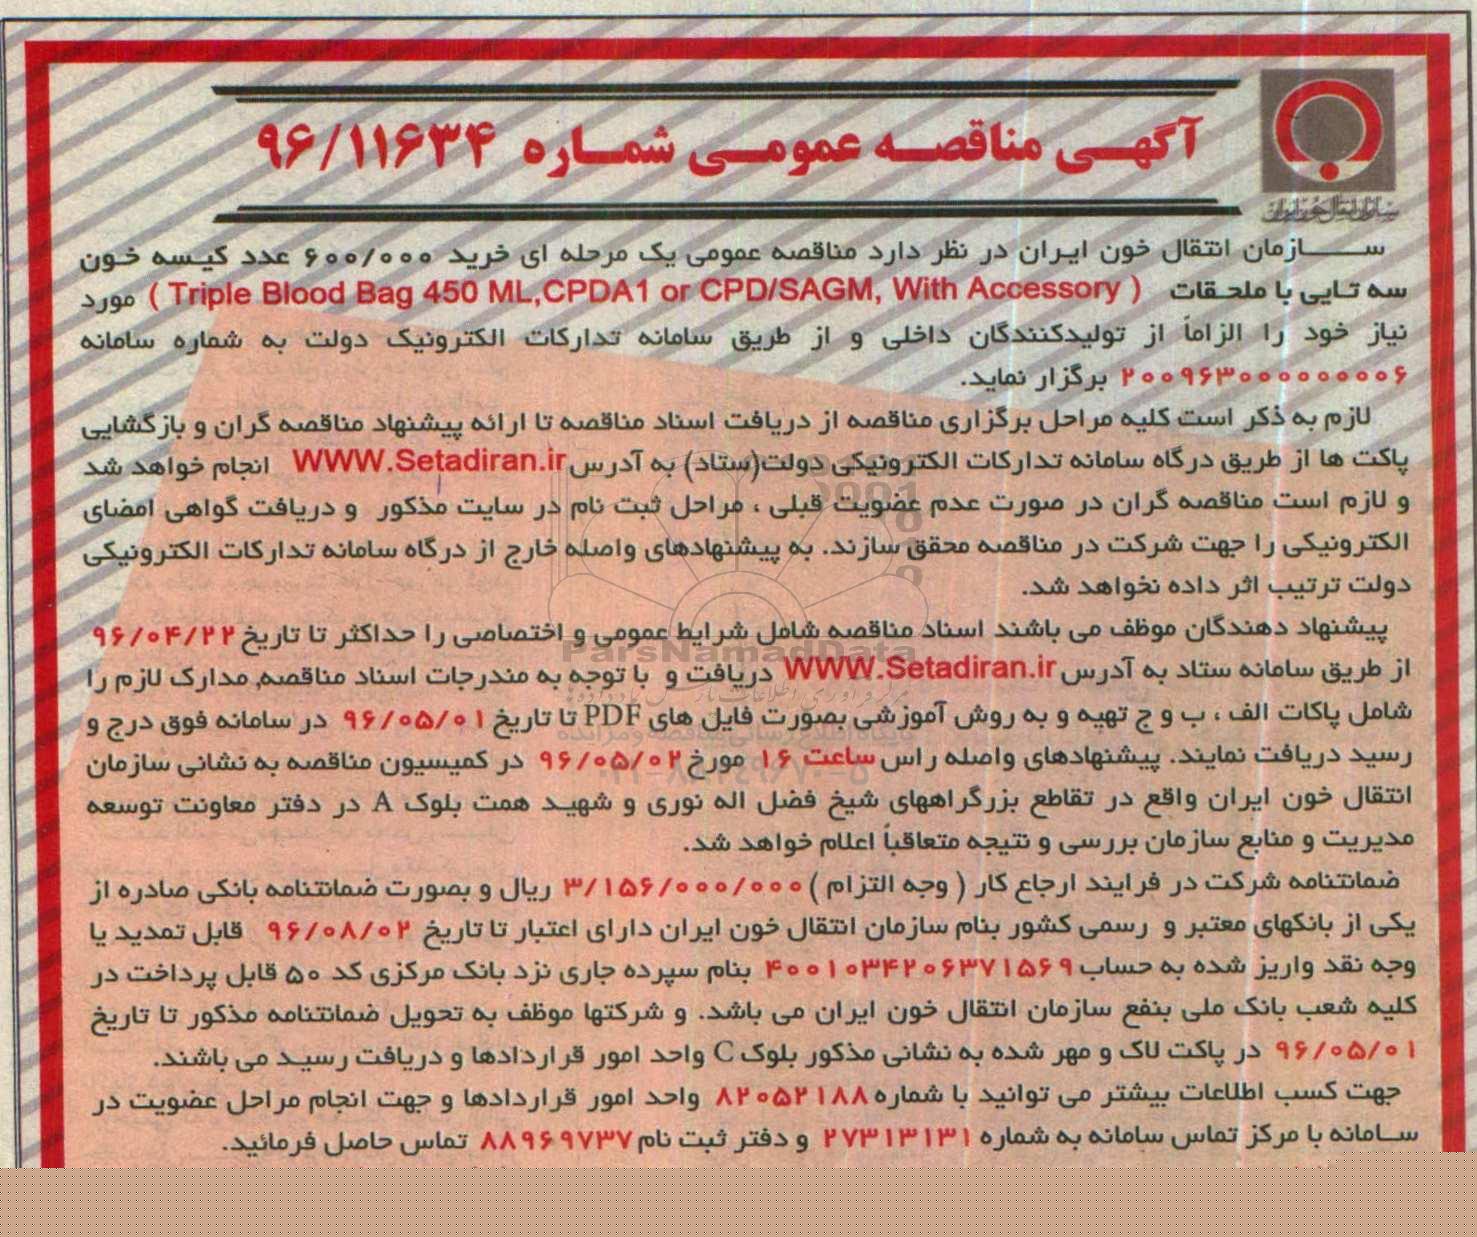 آگهی مناقصه عمومی شماره ۹۶/۱۱۶۳۴
سازمان انتقال خون ایران
سازمان انتقال خون ایران در نظر دارد مناقصه عمومی یک مرحله ای خرید ۶۰۰/۰۰۰ عدد کیسه خون
سه تایی با ملحقات ( Triple Blood Bag 450 ML,CPDA1 or CPD/SAGM, With Accessory ) مورد
نیاز خود را الزاماً از تولیدکنندگان داخلی و از طریق سامانه تدارکات الکترونیک دولت به شماره سامانه
۲۰۰۹۶۳۰۰۰۰۰۰۰۰۰۶ برگزار نماید.
لازم به ذکر است کلیه مراحل برگزاری مناقصه از دریافت اسناد مناقصه تا ارائه پیشنهاد مناقصه گران و بازگشایی
پاکت ها از طریق درگاه سامانه تدارکات الکترونیکی دولت(ستاد) به آدرس WWW.Setadiran.ir انجام خواهد شد
و لازم است مناقصه گران در صورت عدم عضویت قبلی ، مراحل ثبت نام در سایت مذکور و دریافت گواهی امضای
الکترونیکی را جهت شرکت در مناقصه محقق سازند. به پیشنهادهای واصله خارج از درگاه سامانه تدارکات الکترونیکی
دولت ترتیب اثر داده نخواهد شد.
پیشنهاد دهندگان موظف می باشند اسناد مناقصه شامل شرایط عمومی و اختصاصی را حداکثر تا تاریخ ۹۶/۰۴/۲۲
از طریق سامانه ستاد به آدرس WWW.Setadiran.ir دریافت و با توجه به مندرجات اسناد مناقصه, مدارک لازم را
شامل پاکات الف ، ب و ج تهیه و به روش آموزشی بصورت فایل های PDF تا تاریخ ۹۶/۰۵/۰۱ در سامانه فوق درج و
رسید دریافت نمایند. پیشنهادهای واصله راس ساعت ۱۶ مورخ ۹۶/۰۵/۰۲ در کمیسیون مناقصه به نشانی سازمان
انتقال خون ایران واقع در تقاطع بزرگراههای شیخ فضل اله نوری و شهید همت بلوک A در دفتر معاونت توسعه
مدیریت و منابع سازمان بررسی و نتیجه متعاقباً اعلام خواهد شد.
ضمانتنامه شرکت در فرایند ارجاع کار ( وجه التزام ) ۳/۱۵۶/۰۰۰/۰۰۰ ریال و بصورت ضمانتنامه بانکی صادره از
یکی از بانکهای معتبر و رسمی کشور بنام سازمان انتقال خون ایران دارای اعتبار تا تاریخ ۹۶/۰۸/۰۲ قابل تمدید یا
وجه نقد واریز شده به حساب ۴۰۰۱۰۳۴۲۰۶۳۷۱۵۶۹ بنام سپرده جاری نزد بانک مرکزی کد ۵۰ قابل پرداخت در
کلیه شعب بانک ملی بنفع سازمان انتقال خون ایران می باشد. و شرکتها موظف به تحویل ضمانتنامه مذکور تا تاریخ
۹۶/۰۵/۰۱ در پاکت لاک و مهر شده به نشانی مذکور بلوک C واحد امور قراردادها و دریافت رسید می باشند.
جهت کسب اطلاعات بیشتر می توانید با شماره ۸۲۰۵۲۱۸۸ واحد امور قراردادها و جهت انجام مراحل عضویت در
سامانه با مرکز تماس سامانه به شماره ۲۷۳۱۳۱۳۱ و دفتر ثبت نام ۸۸۹۶۹۷۳۷ تماس حاصل فرمائید.
ParsNamadData